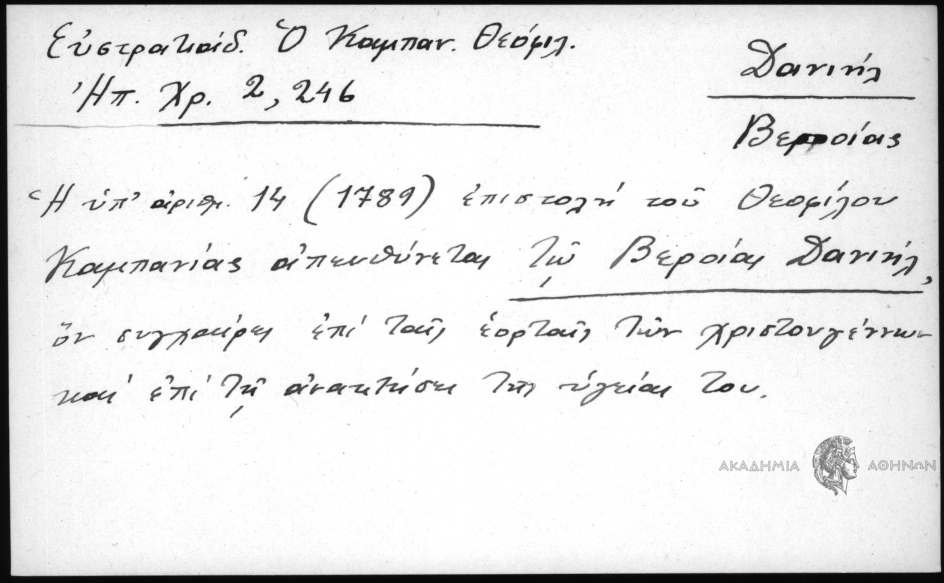 Εὐστρατιάδ. Ὁ Καμπαν. Θεόφιλ.
Ἠπ. Χρ. 2, 246
Δανιὴλ
Βερροίας
Ἡ ὑπ' ἀριθμ. 14 (1789) ἐπιστολὴ τοῦ Θεοφίλου
Καμπανίας ἀπευθύνεται τῷ Βεροίας Δανιὴλ,
ὃν συγχαίρει ἐπὶ ταῖς ἑορταῖς τῶν χριστουγέννων
καὶ ἐπὶ τῇ ἀνακτήσει τῆς ὑγείας του.
ΑΚΑΔΗΜΙΑ ΑΘΗΝΩΝ